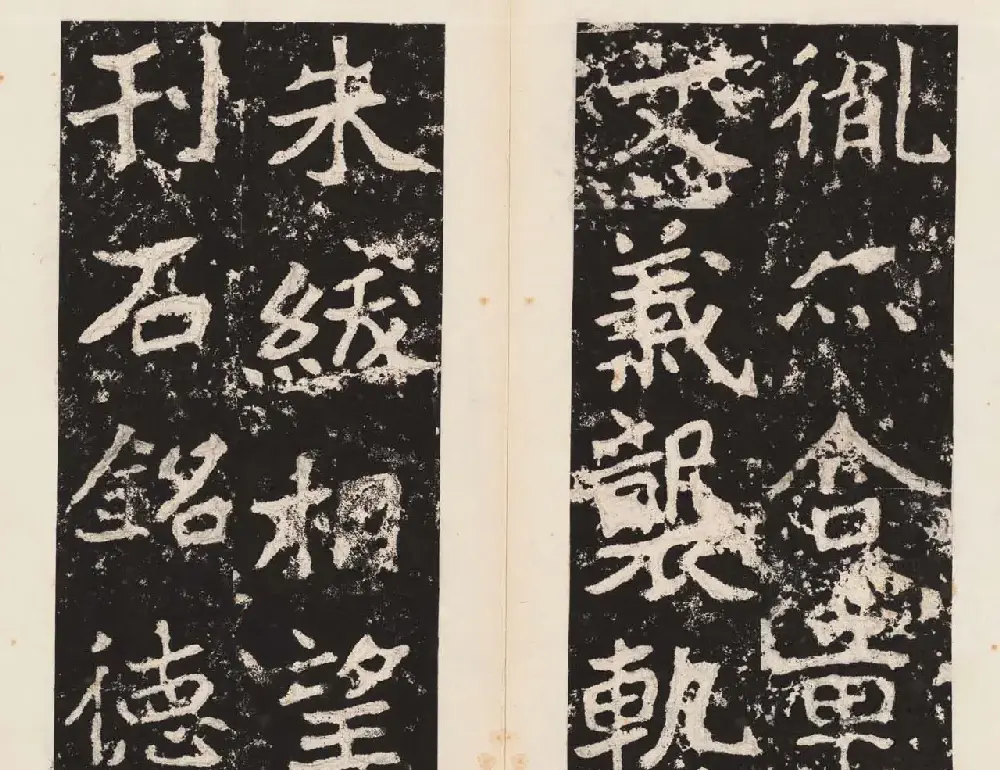 胤亦含章
文義襲軌
朱紱相望
刊石銘德